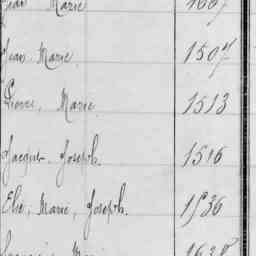 Jean Marie 1687
Jean Marie 1507
Pierre, Marie 1513
Jacques Joseph 1516
Elie, Marie, Joseph. 1536
Marie 1638